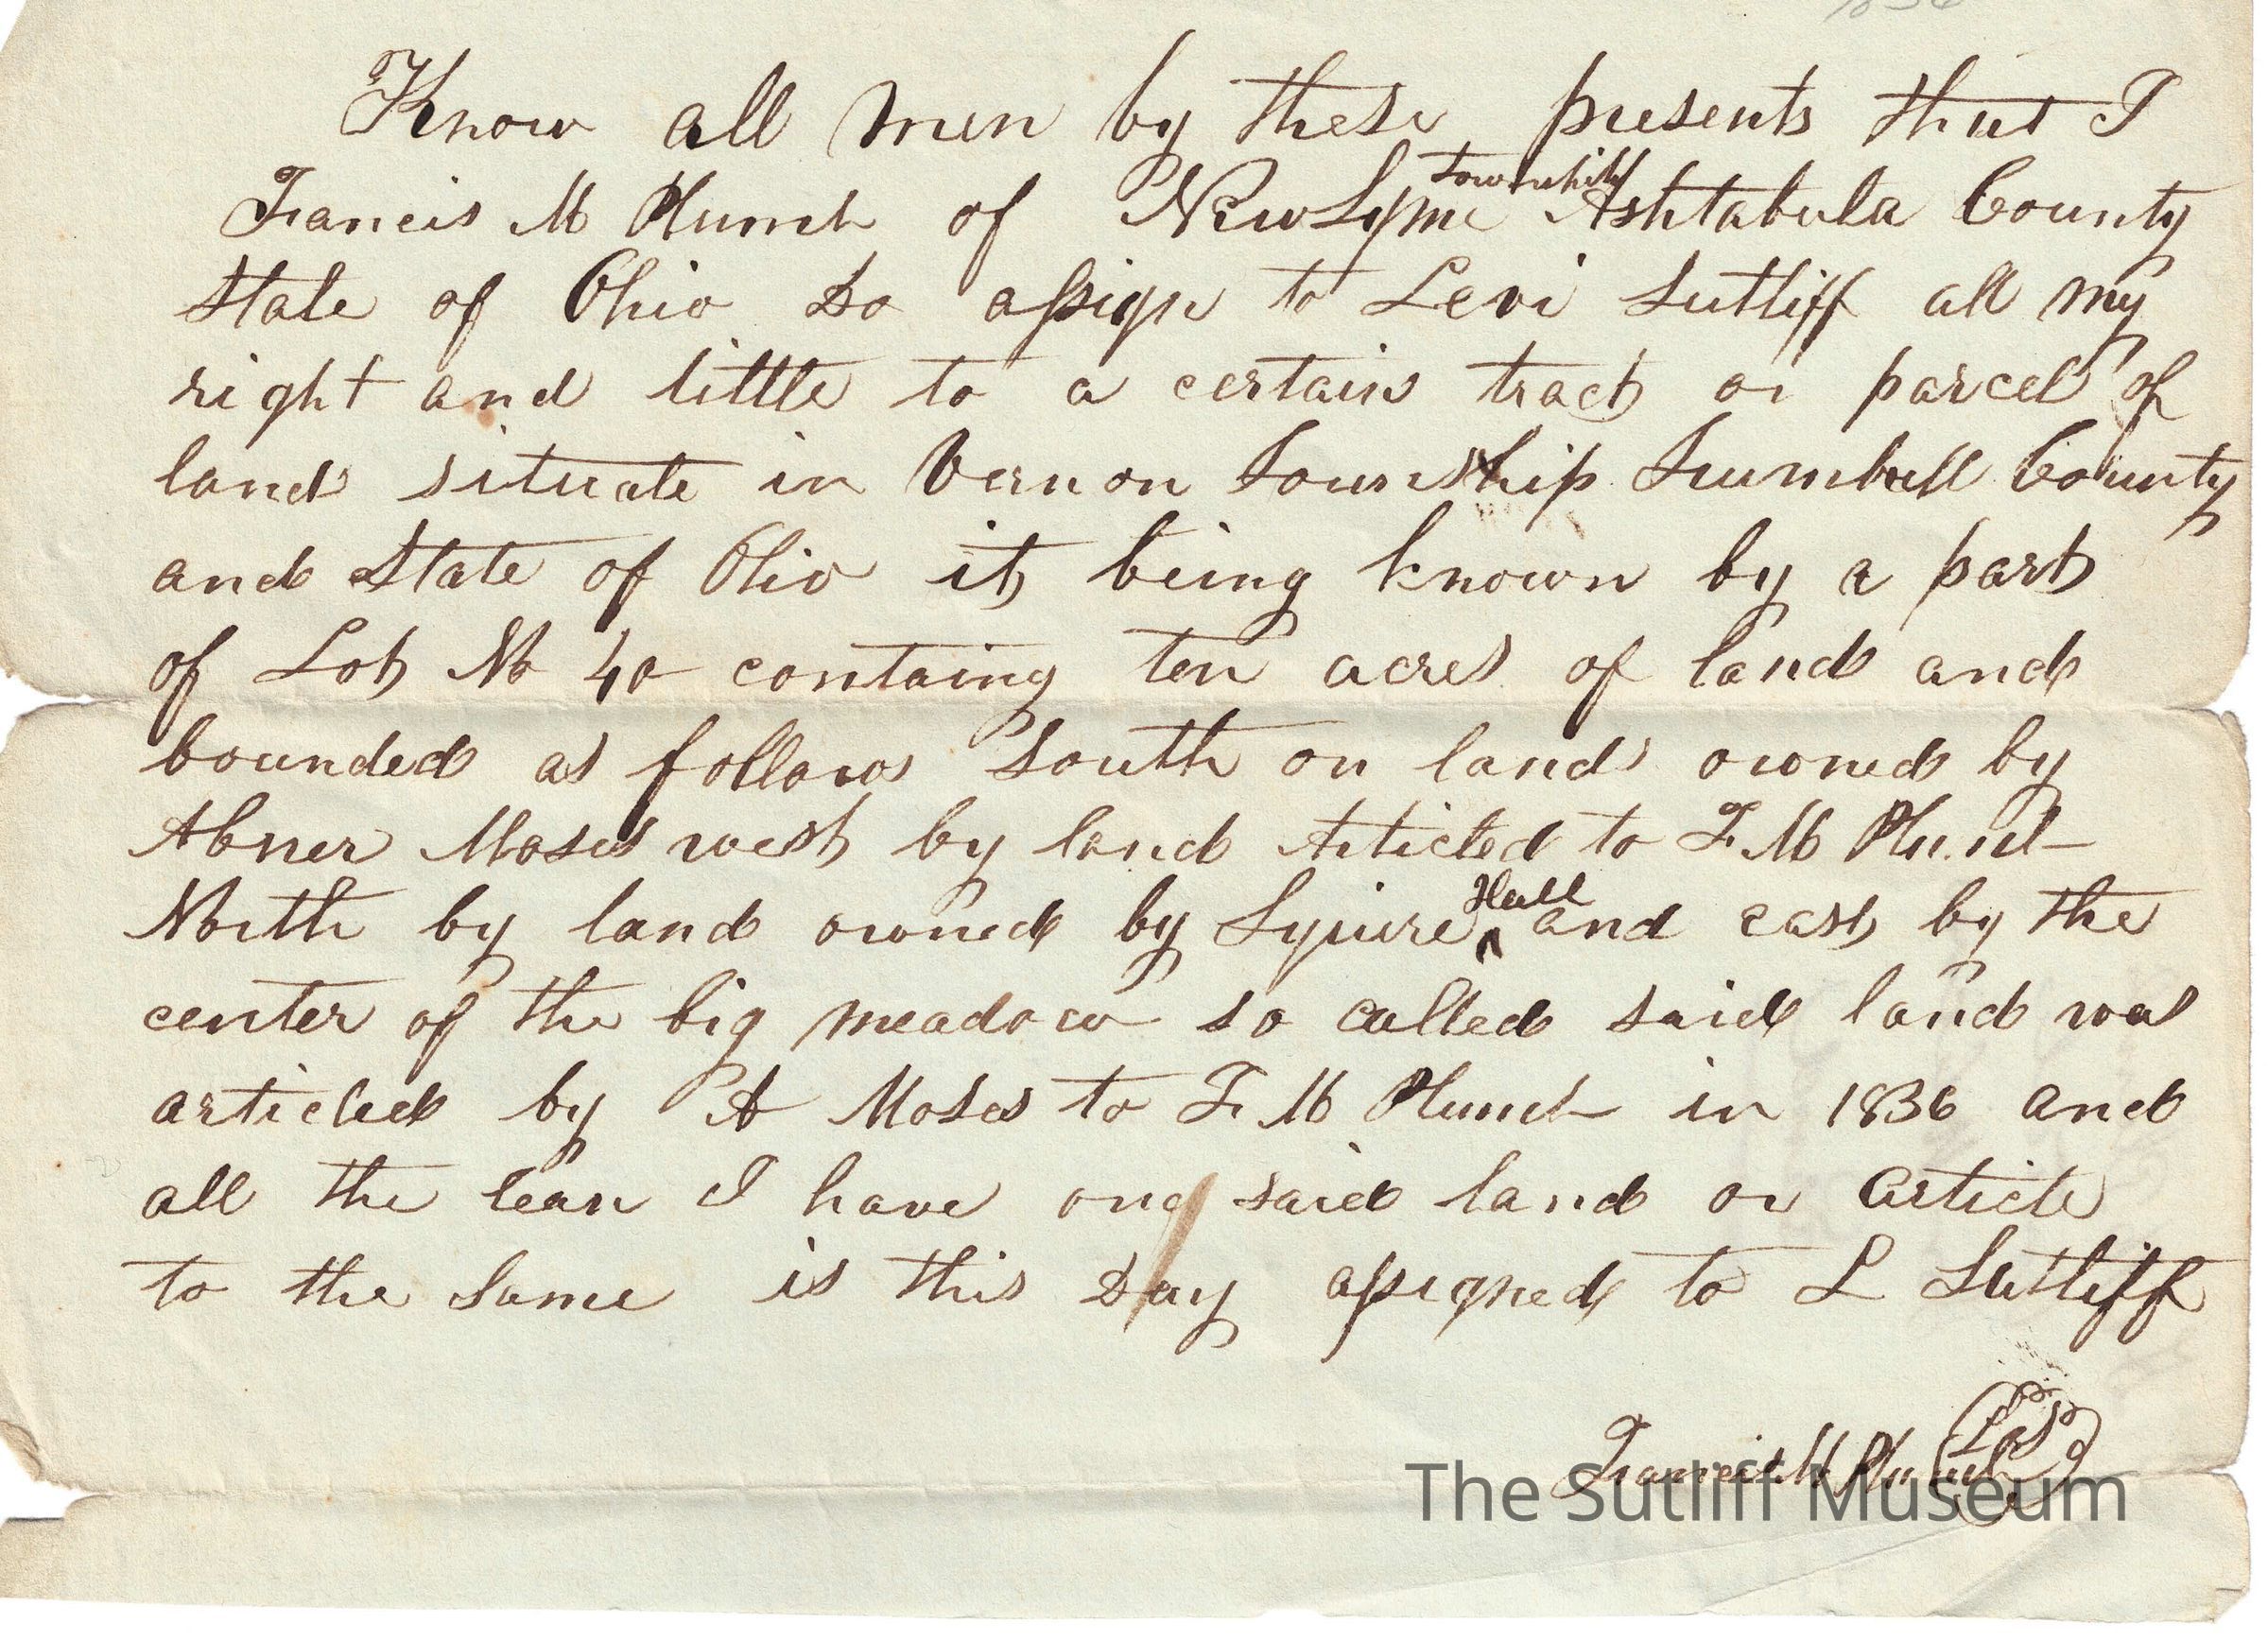 Know all men by these presents that I
Francis M Plumb of New Lyme township Ashtabula County
State of Ohio Do assign to Levi Sutliff all my
right and tittle to a certain tract or parcel of
land situate in Vernon Township Trumbull County
and State of Ohio it being known by a part
of Lot No 40 containg ten acres of land and
bounded as follows South on land owned by
Abner Moses west by land Articled to F. M Plumb
North by land owned by Squire Hull and east by the
center of the big meadow so called said land was
articled by A Moses to F. M Plumb in 1836 and
all the lean I have on said land or article
to the same is this Day assigned to L Sutliff
Francis M Plumb LS
The Sutliff Museum